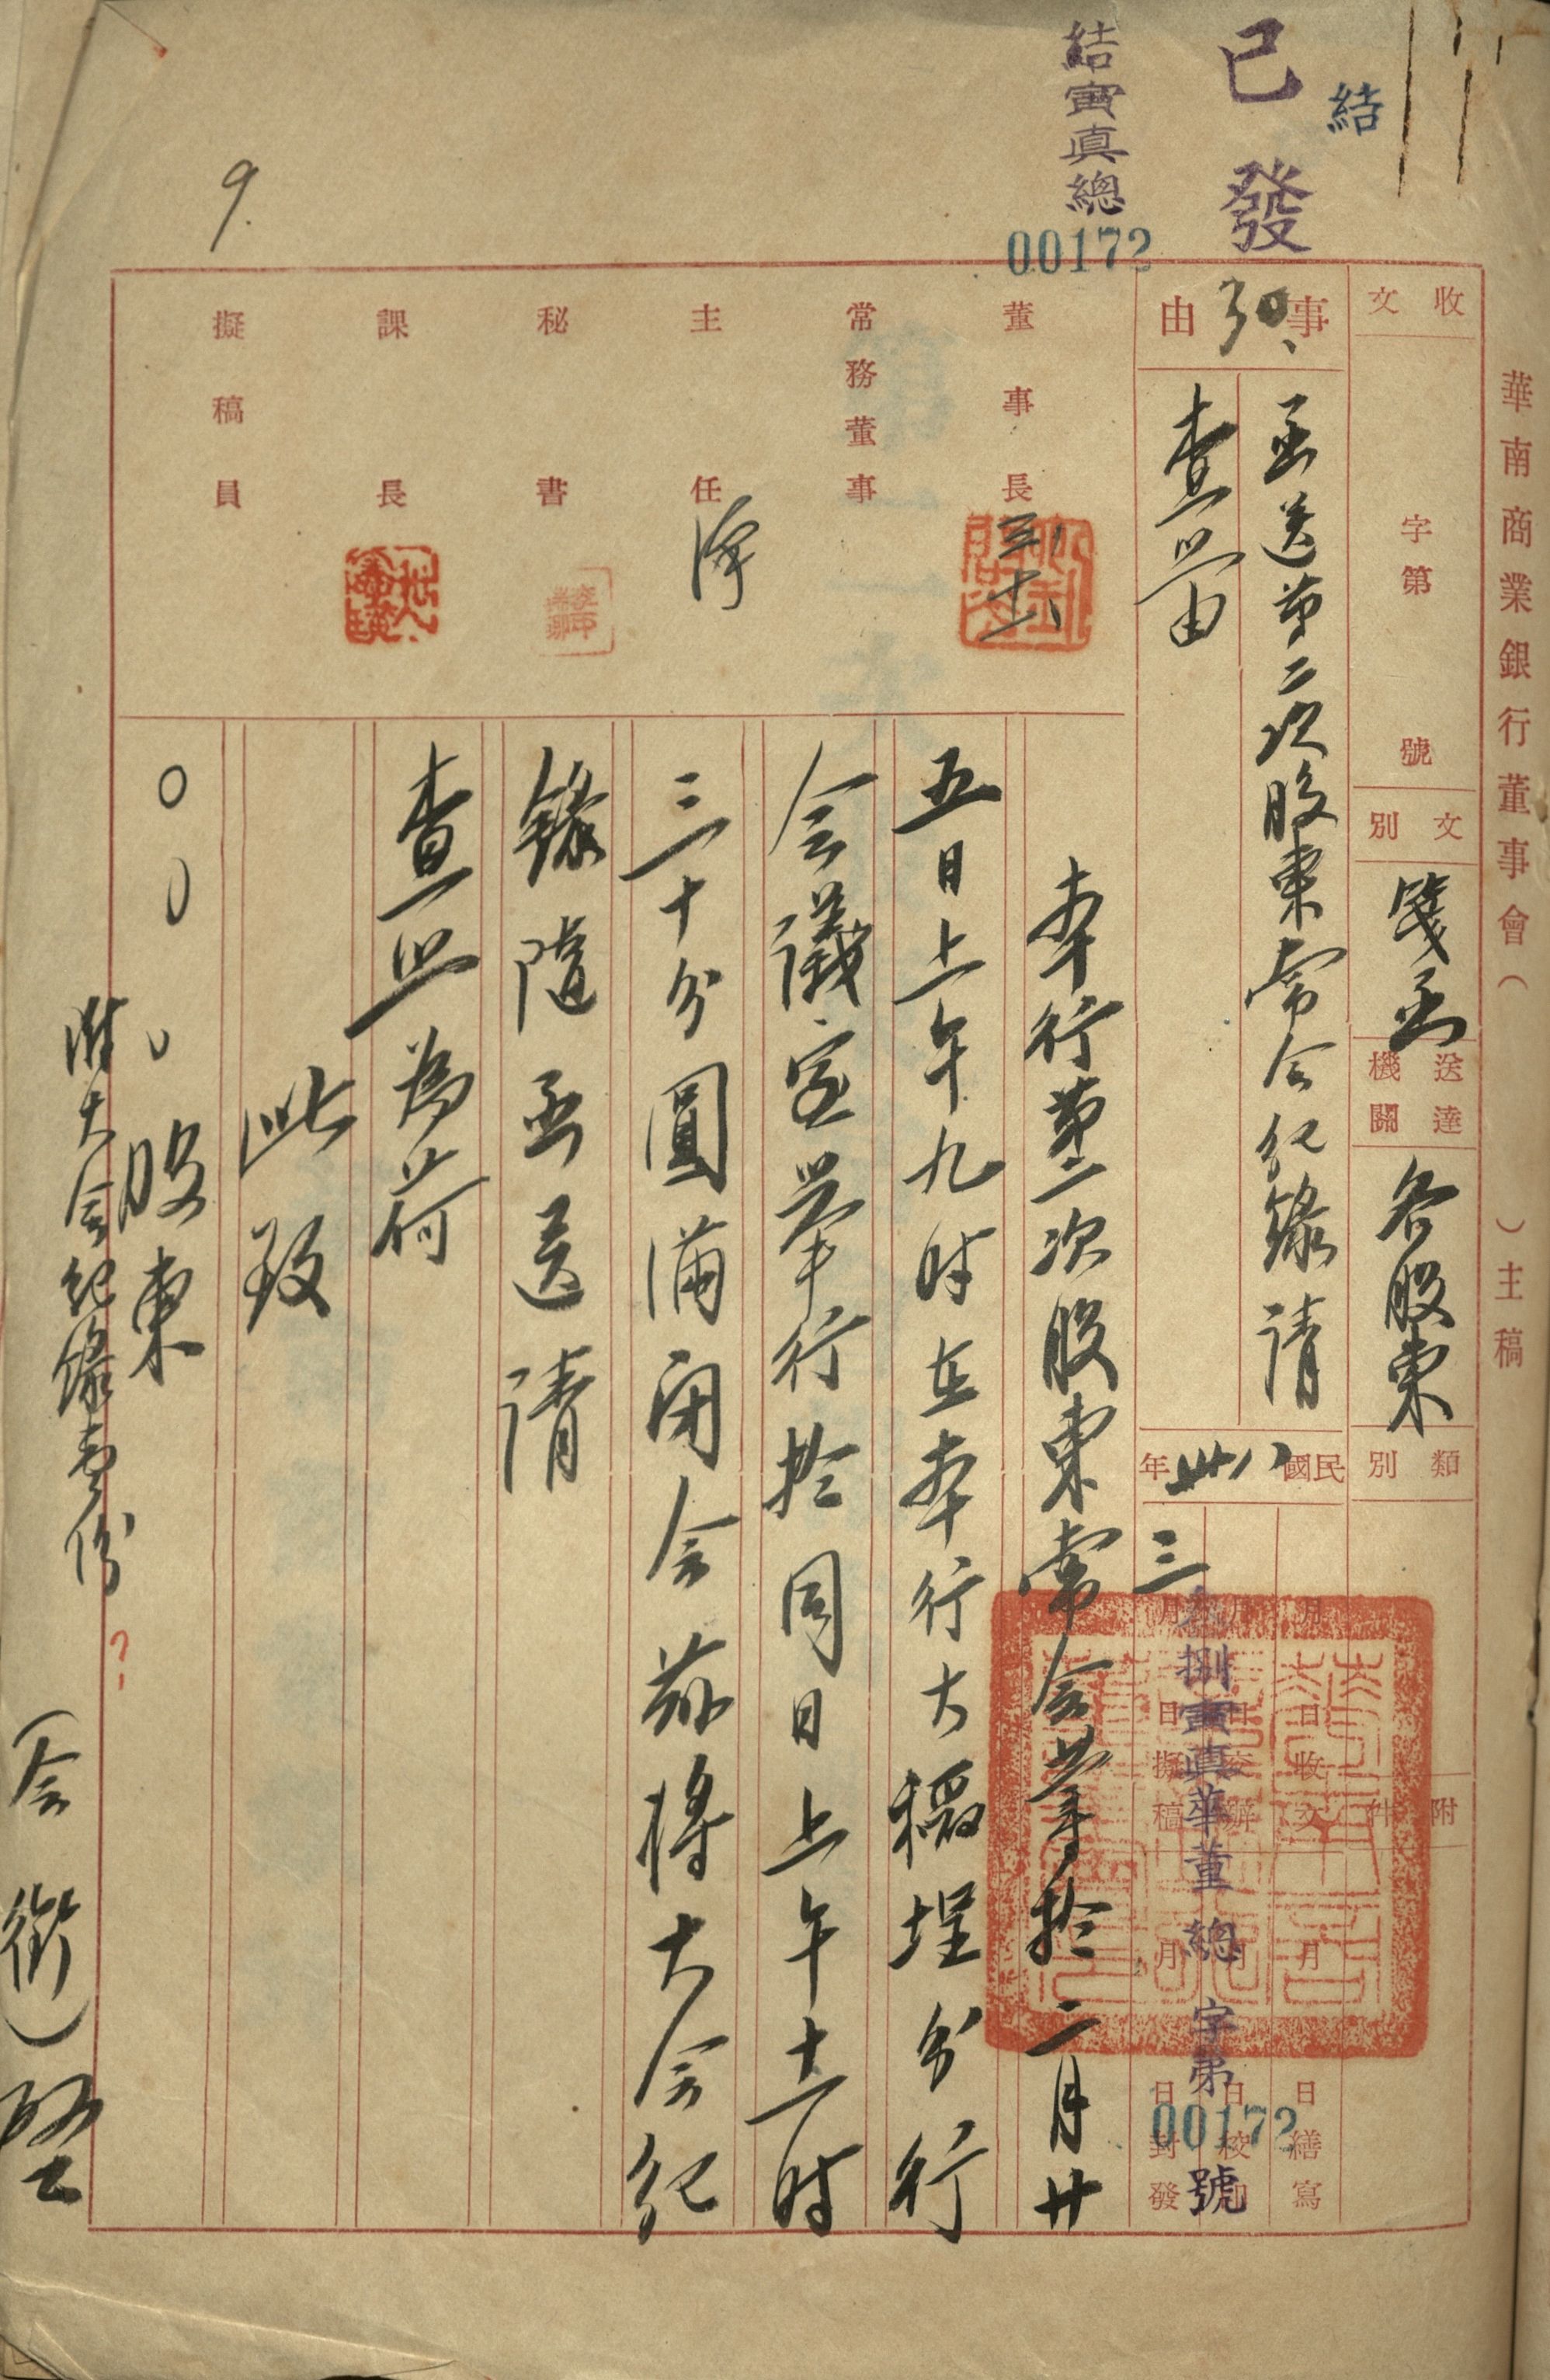 華南商業銀行董事會（　　）主稿
結
已發
結寅真總
00172
收文
字第　號
文別
箋函
送達機關
各股東
類別
附件
事由
函送第二次股東常会紀錄請
查照由
民國卅八年
三
月　日收文
月　日交辦
月　日擬稿
月　日繕寫
月　日校
月　日封發
捌寅真華董總字第00172號
董事長
常務董事
主任
秘書
課長
擬稿員
本行第二次股東常会業於二月廿
五日上午九時在本行大稻埕分行
会議室舉行於同日上午十一時
三十分圓滿閉会茲將大会紀
錄隨函送請
查照為荷
此致
○○○股東
附大会紀錄壹份
（全銜）啓
9.